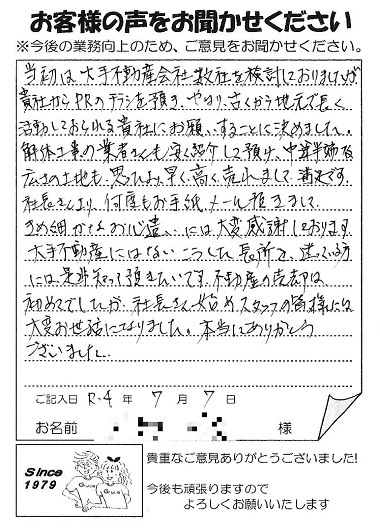 お客様の声をお聞かせください
※今後の業務向上のため、ご意見をお聞かせください。
当初は大手不動産会社数社を検討しておりましたが
貴社からPRのチラシを頂き、やはり、古くから地元で長く
活動しておられる貴社にお願いすることに決めました。
解体工事の業者さんも安く紹介して頂け、中途半端な
広さの土地も、思ったより早く高く売れまして満足です。
社長さんより、何度もお手紙、メール頂きまして
きめ細かなお心遣いには大変感謝しております
大手不動産にはないこうした長所を、迷っている方
には是非知って頂きたいです。不動産の売却は
初めてでしたが、社長さん始めスタッフの皆様には
大変お世話になりました。本当にありがとう
ございました。
ご記入日 R.4年 7月 7日
お名前 様
Since
1979
貴重なご意見ありがとうございました!
今後も頑張りますので
よろしくお願いいたします